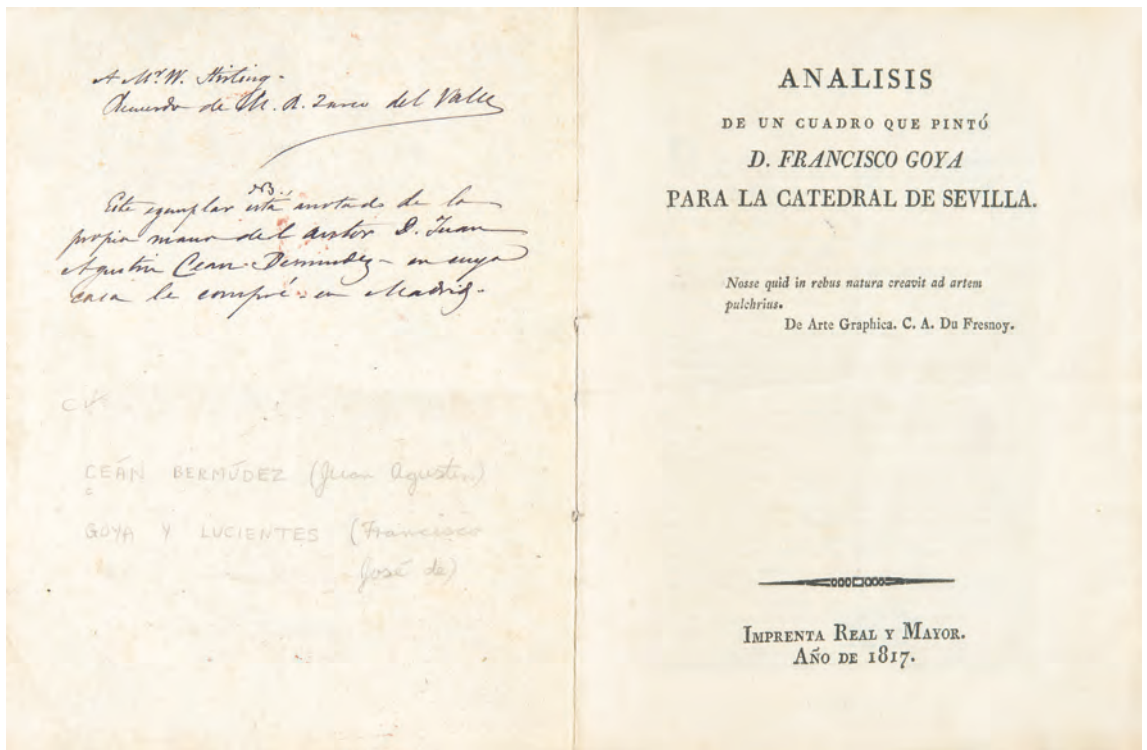 A Mr. W. Stirling -
Recuerdo de M. R. Zarco del Valle
NB.,
Este egemplar está anotado de la
propia mano del autor D. Juan
Agustin Cean-Bermudez - en cuya
casa le compré - en Madrid -
CEÁN BERMÚDEZ (Juan Agustín)
GOYA Y LUCIENTES (Francisco
José de)
ANALISIS
DE UN CUADRO QUE PINTÓ
D. FRANCISCO GOYA
PARA LA CATEDRAL DE SEVILLA.
Nosse quid in rebus natura creavit ad artem
pulchrius.
De Arte Graphica. C. A. Du Fresnoy.
IMPRENTA REAL Y MAYOR.
AÑO DE 1817.